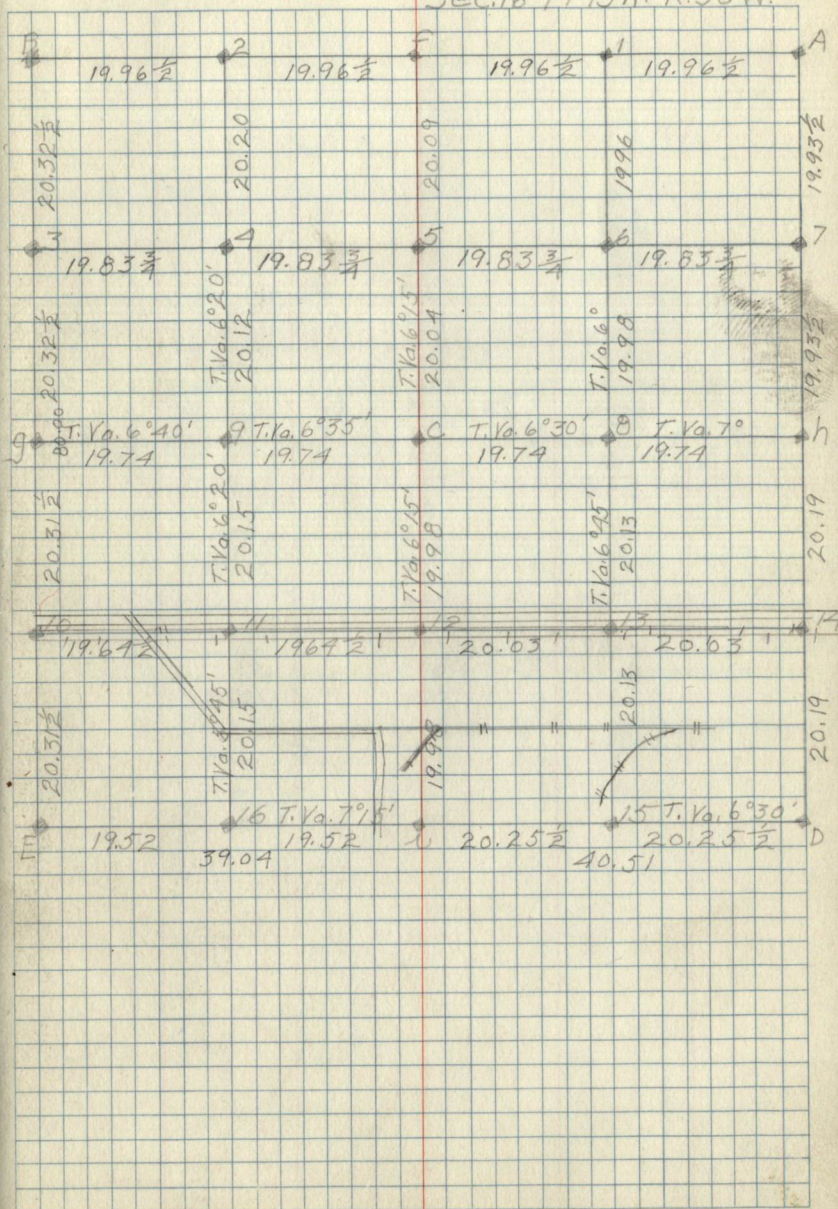 2 1 A
19.96 1/2 19.96 1/2 19.96 1/2 19.96 1/2
20.32 1/2 20.20 20.09 1996 19.93 1/2
3 4 5 6 7
19.83 3/4 19.83 3/4 19.83 3/4 19.83 3/4
20.32 1/2 T.Va.6°20' 20.12 T.Va.6°15' 20.04 T.Va.6° 19.98 19.93 1/2
g 80.90 T.Va.6°40' 9 T.Va.6°35' C T.Va.6°30' 8 T.Va.7° h
19.74 19.74 19.74 19.74
20.31 1/2 T.Va.6°20' 20.15 T.Va.6°15' 19.98 T.Va.6°45' 20.13 20.19
10 11 12 13 14
19.64 1/2 1964 1/2 20.03 20.03
20.31 1/2 20.15 19.98 20.13 20.19
m 16 T.Va.7°15' i 15 T.Va.6°30' D
19.52 19.52 20.25 1/2 20.25 1/2
39.04 40.51